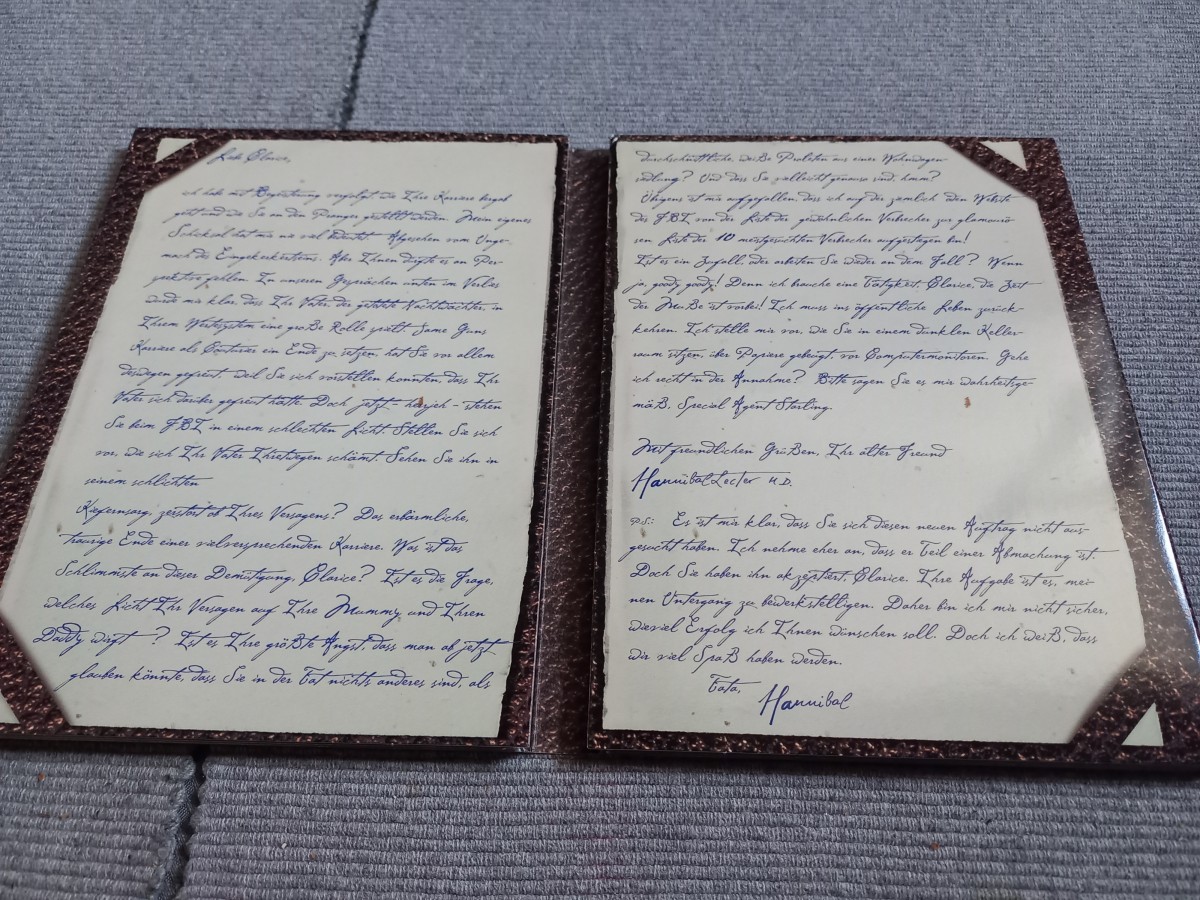 Liebe Clarice,
ich habe mit Begeisterung verfolgt, wie Ihre Karriere bergab
geht und wie Sie an den Pranger gestellt werden. Mein eigenes
Schicksal hat mir nie viel bedeutet. Abgesehen vom Unge-
mach des Eingekerkertseins. Aber Ihnen dürfte es an Per-
spektive fehlen. In unseren Gesprächen unten im Verlies
wurde mir klar, dass Ihr Vater, der getötete Nachtwächter, in
Ihrem Wertesystem eine große Rolle spielt. Jame Gums
Karriere als Couturier ein Ende zu setzen, hat Sie vor allem
deswegen gefreut, weil Sie sich vorstellen konnten, dass Ihr
Vater sich darüber gefreut hätte. Doch jetzt - herrjeh - stehen
Sie beim FBI in einem schlechten Licht. Stellen Sie sich
vor, wie sich Ihr Vater Ihretwegen schämt. Sehen Sie ihn in
seinem schlichten
Kiefernsarg, zerstört ob Ihres Versagens? Das erbärmliche,
traurige Ende einer vielversprechenden Karriere. Was ist das
Schlimmste an dieser Demütigung, Clarice? Ist es die Frage,
welches Licht Ihr Versagen auf Ihre Mummy und Ihren
Daddy wirft ? Ist es Ihre größte Angst, dass man ab jetzt
glauben könnte, dass Sie in der Tat nichts anderes sind, als
durchschnittliche, weiße Proleten aus einer Wohnwagen-
siedlung? Und dass Sie vielleicht genauso sind, hmm?
Übrigens ist mir aufgefallen, dass ich auf der ziemlich öden Website
des FBI von der Liste der gewöhnlichen Verbrecher zur glamourö-
sen Liste der 10 meistgesuchten Verbrecher aufgestiegen bin!
Ist es ein Zufall, oder arbeiten Sie wieder an dem Fall? Wenn
ja, goody goody! Denn ich brauche eine Tätigkeit, Clarice, die Zeit
der Muße ist vorbei! Ich muss ins öffentliche Leben zurück-
kehren. Ich stelle mir vor, wie Sie in einem dunklen Keller-
raum sitzen, über Papiere gebeugt, vor Computermonitoren. Gehe
ich recht in der Annahme? Bitte sagen Sie es mir wahrheitsge-
mäß, Special Agent Starling.
Mit freundlichen Grüßen, Ihr alter Freund
Hannibal Lecter M.D.
P.S.: Es ist mir klar, dass Sie sich diesen neuen Auftrag nicht aus-
gesucht haben. Ich nehme eher an, dass er Teil einer Abmachung ist.
Doch Sie haben ihn akzeptiert, Clarice. Ihre Aufgabe ist es, mei-
nen Untergang zu bewerkstelligen. Daher bin ich mir nicht sicher,
wieviel Erfolg ich Ihnen wünschen soll. Doch ich weiß, dass
wir viel Spaß haben werden.
Tata,
Hannibal